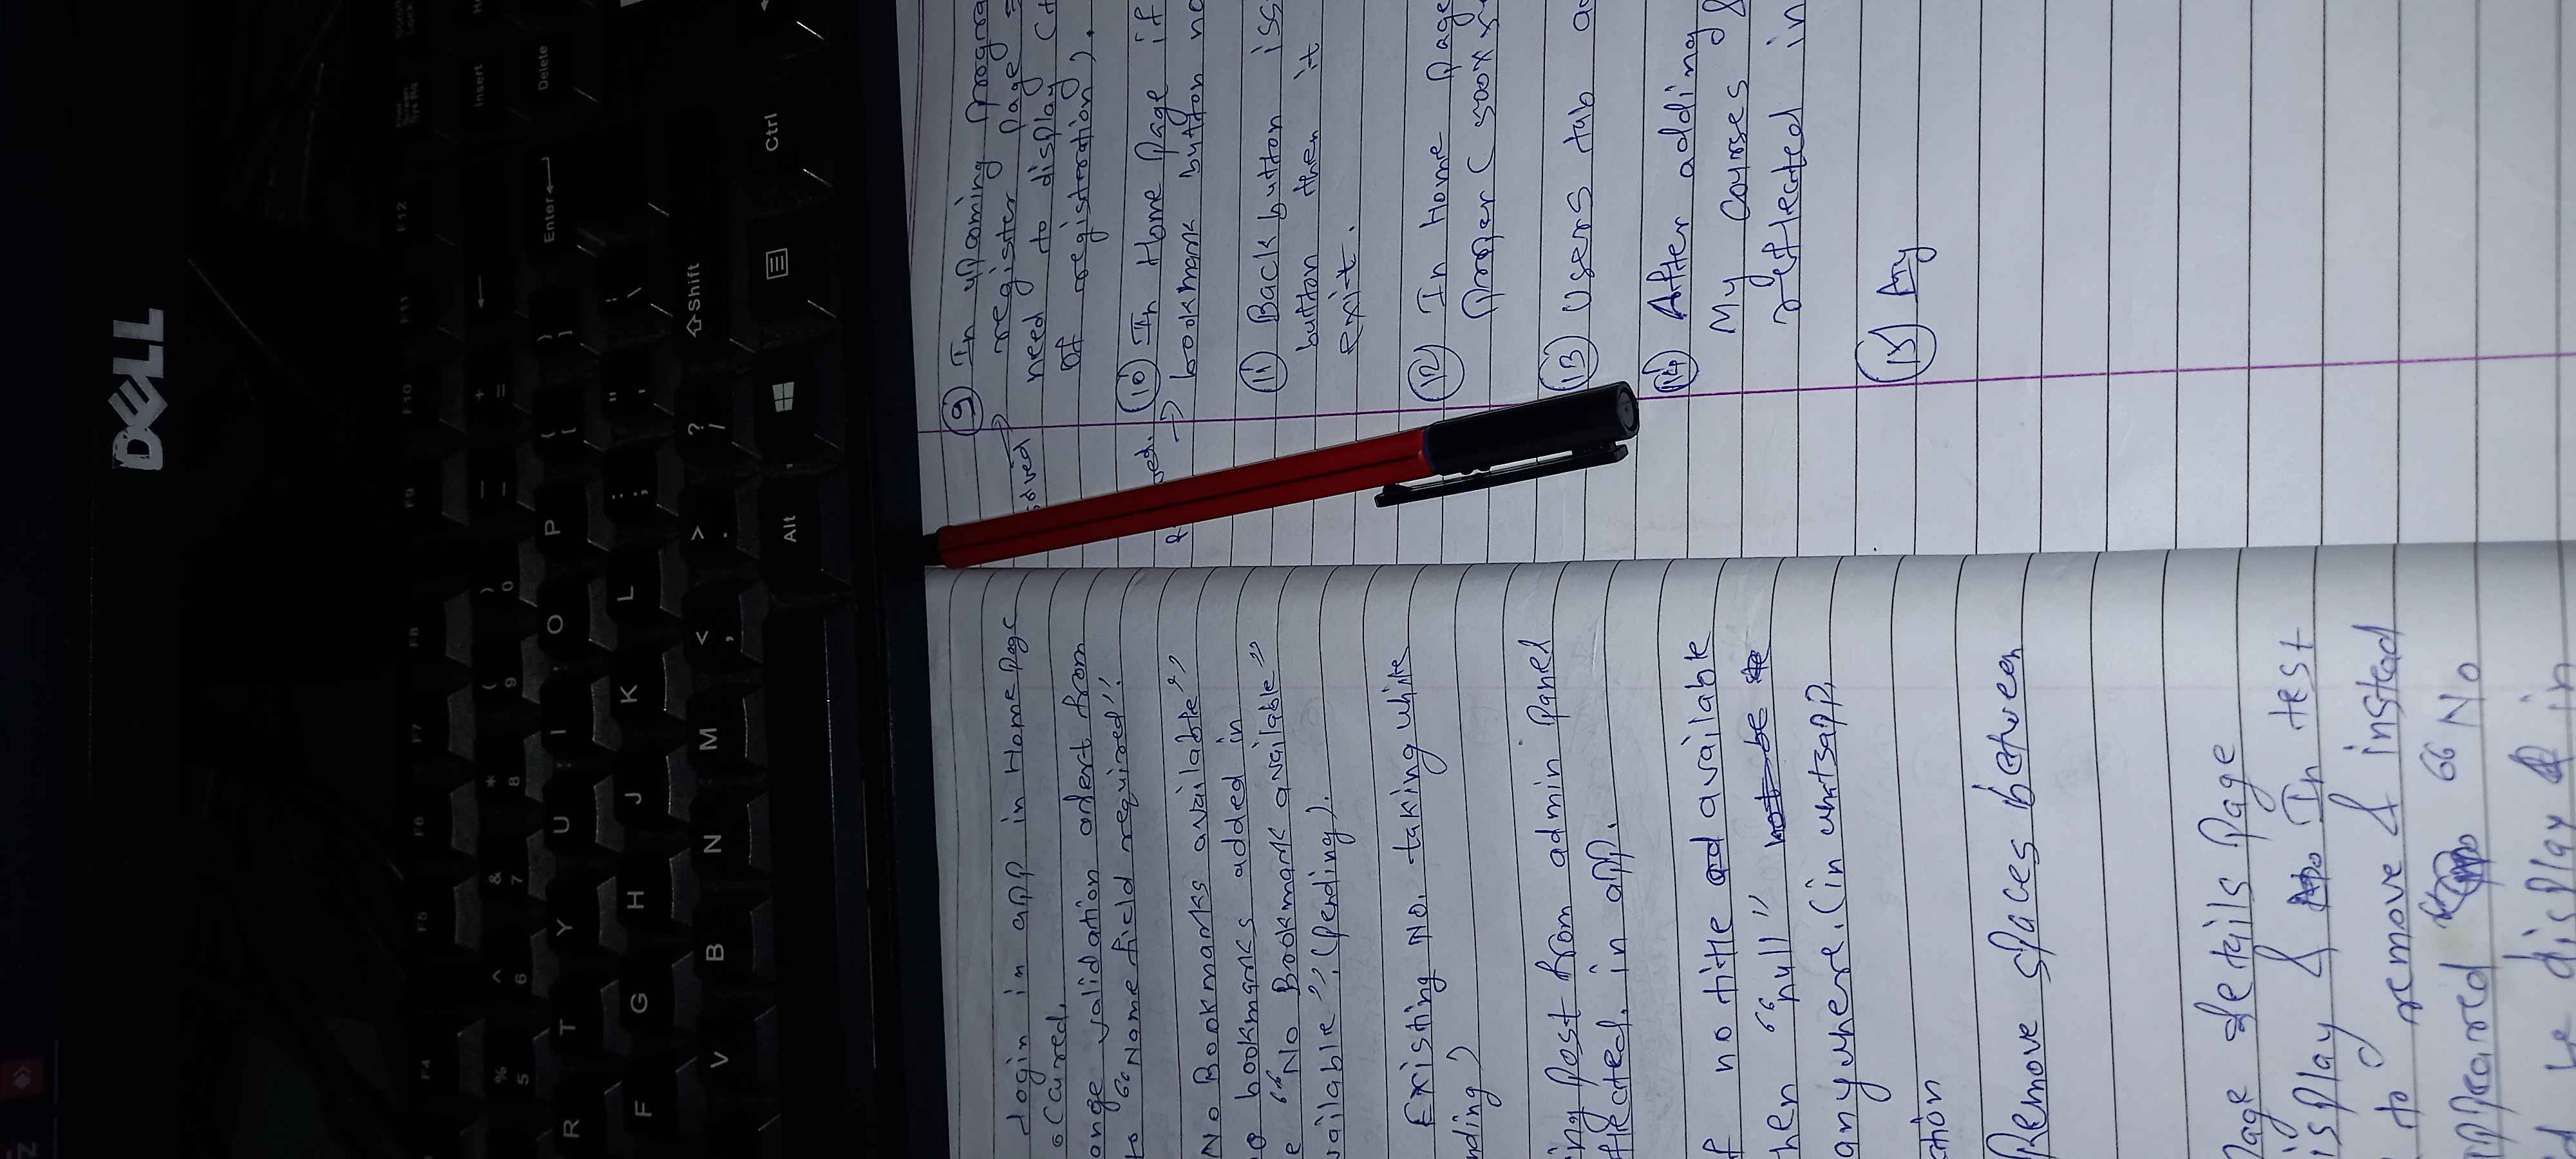 DELL
F4 F5 F6 F7 F8 F9 F10 F11 F12
% ^ & * ( ) — + ←
5 6 7 8 9 0 - = Insert
R T Y U I O P { [ } ] Enter Delete
F G H J K L : ; " ' \
V B N M < , > . ? / Shift
Alt Ctrl
login in app in Home Page
occured.
ange validation alert from
to "Name field required"!
No Bookmarks available"
bookmarks added in
e "No Bookmark available"
vailable", (Pending).
Existing No. taking while
nding)
ing post from admin Panel
flected. in app.
f no title ad available
hen "null" not be
anywhere. (in whatsapp,
ction
Remove spaces between
Page details Page
isplay & In test
to remove & instead
appeared "No
display & in
9 In upcoming progra
solved → register Page
need to display (t
of registeration).
10 In Home Page if
→ bookmark button no
11 Back button iss
button then it
exit.
12 In Home Page
Proper (500x5
13 Users tab ad
14 After adding
My Courses &
reflected in
15 Any